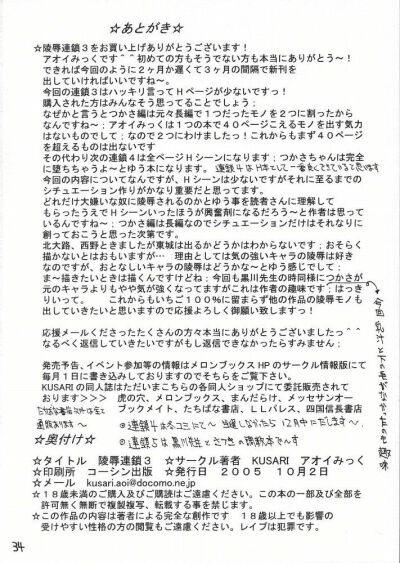 ☆あとがき☆
☆陵辱連鎖３をお買い上げありがとうございます！
アオイみっくです＾＾初めての方もそうでない方も本当にありがとう～！
できれば今回のように２ヶ月か遅くて３ヶ月の間隔で新刊を
出していければいいですね～。
今回の連鎖３はハッキリ言ってＨページが少ないですっ！
購入された方はみんなそう思ってることでしょう；
なぜかと言うとつかさ編は元々長編で１つだったモノを２つに割ったから
なんですね～；アオイみっくは１つの本で４０ページこえるモノを出す気力
はないものでして；なので２つにわけましたっ！これからもまず４０ページ
を超えるものは出ないです
その代わり次の連鎖４は全ページＨシーンになります；つかさちゃんは完全
に堕ちちゃうよ～とゆう本になります。
今回の内容についてなんですが、Ｈシーンは少ないですがそれに至るまでの
シチュエーション作りがかなり重要だと思ってます。
どれだけ大嫌いな奴に陵辱されるのかとゆう事を読者さんに理解して
もらったうえでＨシーンいったほうが興奮剤になるだろう～と作者は思って
いるんですね～；つかさ編は長編なのでシチュエーションだけはそれなりに
創っておこうと思った次第です。
北大路、西野ときましたが東城は出るかどうかはわからないです；おそらく
描かないとはおもいますが…　理由としては気の強いキャラの陵辱は好き
なのですが、おとなしいキャラの陵辱はどうかな～とゆう感じでして；
ま～描きたいときは描くんですけどね；今回も黒川先生の時同様につかさが
元のキャラよりもやや気が強くなってますがこれは作者の趣味です；はっき
りいって。　これからもいちご１００％に留まらず他の作品の陵辱モノも
出していきたいと思いますので応援よろしく御願い致しますっ！
応援メールくださったたくさんの方々本当にありがとうございましたっ＾＾
なるべく返信していきたいですが、もし返信できなかったらすみません；
発売予告、イベント参加等の情報はメロンブックスＨＰのサークル情報版にて
毎月１日に書き込みしておりますのでそちらをご覧下さい。
KUSARIの同人誌はただいまこちらの各同人ショップにて委託販売されて
おります＞＞＞　虎の穴、メロンブックス、まんだらけ、メッセサンオー
ブックメイト、たちばな書店、ＬＬパレス、四国信長書店
☆奥付け☆
☆タイトル　陵辱連鎖３　☆サークル著者　KUSARI　アオイみっく
☆印刷所　コーシン出版　☆発行日　２００５　１０月２日
☆メール　kusari.aoi@docomo.ne.jp
☆１８歳未満のご購入及びご購読はご遠慮ください。この本の一部及び全部を
許可無く無断で複製複写、転載する事を禁じます。
☆この作品の内容は著者による完全な創作です　１８歳以上でも影響の
受けやすい性格の方の閲覧もご遠慮ください。レイプは犯罪です。
34